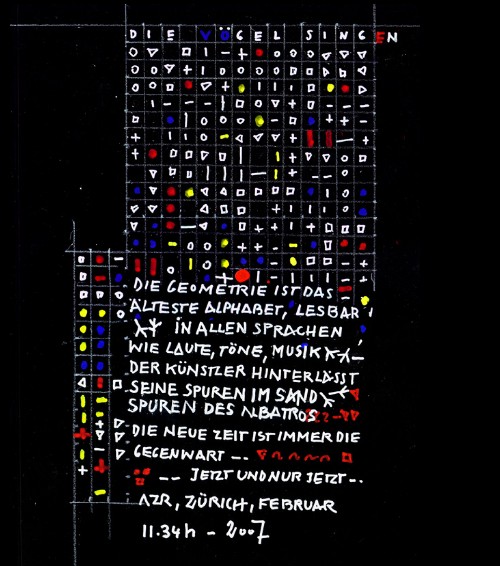 DIE VÖGEL SINGEN
DIE GEOMETRIE IST DAS
ÄLTESTE ALPHABET, LESBAR
IN ALLEN SPRACHEN
WIE LAUTE, TÖNE, MUSIK
DER KÜNSTLER HINTERLÄSST
SEINE SPUREN IM SAND
SPUREN DES ALBATROS
DIE NEUE ZEIT IST IMMER DIE
GEGENWART --
-- JETZT UND NUR JETZT --
AZR, ZÜRICH, FEBRUAR
11.34h - 2007